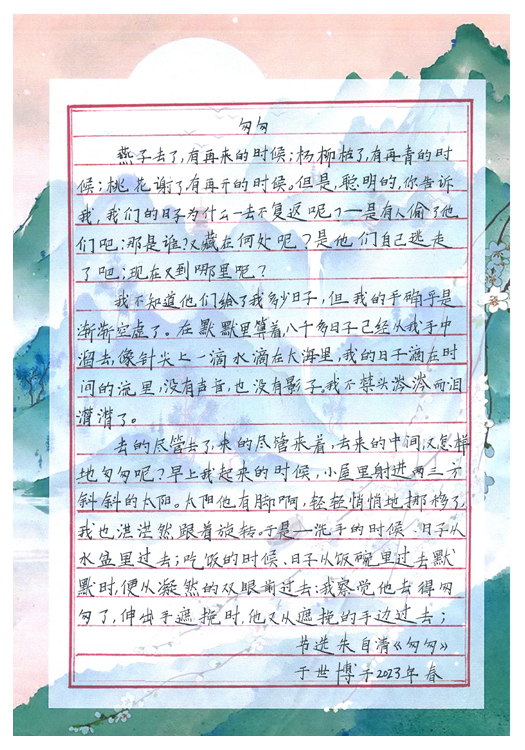 匆匆
燕子去了,有再来的时候;杨柳枯了,有再青的时
候;桃花谢了,有再开的时候。但是,聪明的,你告诉
我,我们的日子为什么一去不复返呢?一是有人偷了他
们吧:那是谁?又藏在何处呢?是他们自己逃走
了吧:现在又到哪里呢?
我不知道他们给了我多少日子,但我的手确乎是
渐渐空虚了。在默默里算着,八千多日子已经从我手中
溜去,像针尖上一滴水滴在大海里,我的日子滴在时
间的流里,没有声音,也没有影子。我不禁头涔涔而泪
潸潸了。
去的尽管去了,来的尽管来着,去来的中间,又怎样
地匆匆呢?早上我起来的时候,小屋里射进两三方
斜斜的太阳。太阳他有脚啊,轻轻悄悄地挪移了,
我也茫茫然跟着旋转。于是一洗手的时候、日子从
水盆里过去;吃饭的时候、日子从饭碗里过去默
默时,便从凝然的双眼前过去:我察觉他去得匆
匆了,伸出手遮挽时,他又从遮挽的手边过去;
节选朱自清《匆匆》
于世博于2023年春